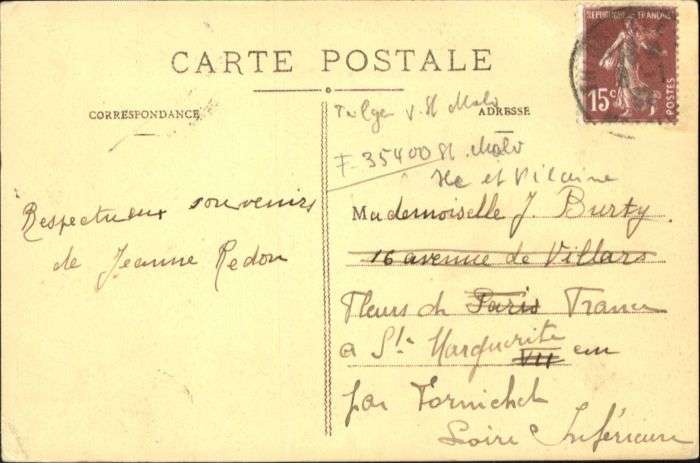 CARTE POSTALE
CORRESPONDANCE
ADRESSE
REPUBLIQUE FRANÇAISE
15c
POSTES
St Malo
F-35400 St. Malo
Ille et Vilaine
Respectueux souvenirs
de Jeanne Redon
Mademoiselle J. Burty
16 avenue de Villars
Fleurs de Paris France
a Ste Marguerite VII en
par Pornichet
Loire Inférieure